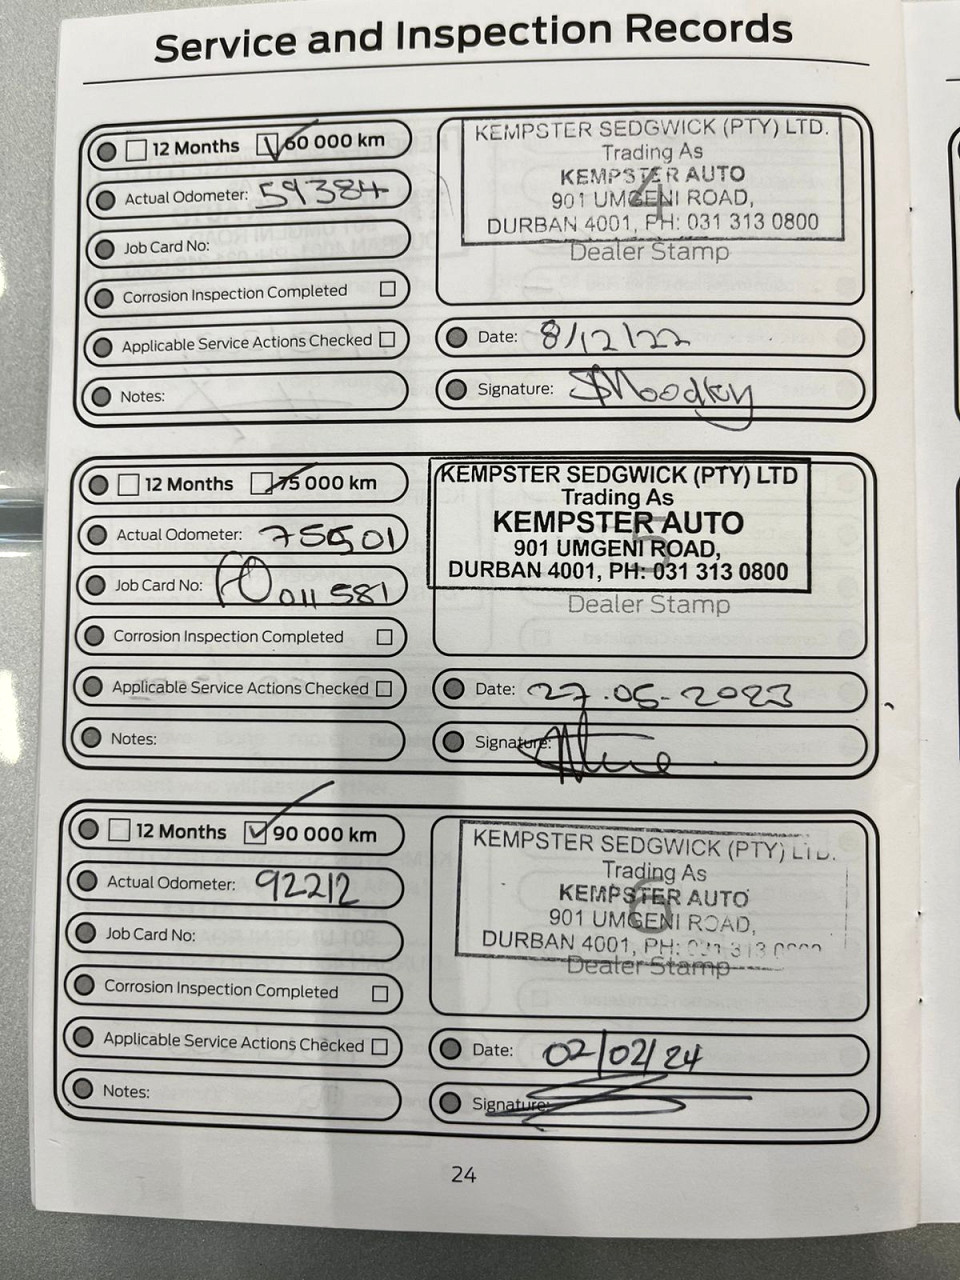 Service and Inspection Records
12 Months 60 000 km
Actual Odometer: 59384
Job Card No:
Corrosion Inspection Completed
Applicable Service Actions Checked
Notes:
KEMPSTER SEDGWICK (PTY) LTD.
Trading As
KEMPSTER AUTO
901 UMGENI ROAD,
DURBAN 4001, PH: 031 313 0800
4
Dealer Stamp
Date: 8/12/22
Signature:
12 Months 75 000 km
Actual Odometer: 75501
Job Card No: 011581
Corrosion Inspection Completed
Applicable Service Actions Checked
Notes:
KEMPSTER SEDGWICK (PTY) LTD
Trading As
KEMPSTER AUTO
901 UMGENI ROAD,
DURBAN 4001, PH: 031 313 0800
5
Dealer Stamp
Date: 27.05-2023
Signature:
12 Months 90 000 km
Actual Odometer: 92212
Job Card No:
Corrosion Inspection Completed
Applicable Service Actions Checked
Notes:
KEMPSTER SEDGWICK (PTY) LTD.
Trading As
KEMPSTER AUTO
901 UMGENI ROAD,
DURBAN 4001, PH: 031 313
6
Dealer Stamp
Date: 02/02/24
Signature:
24